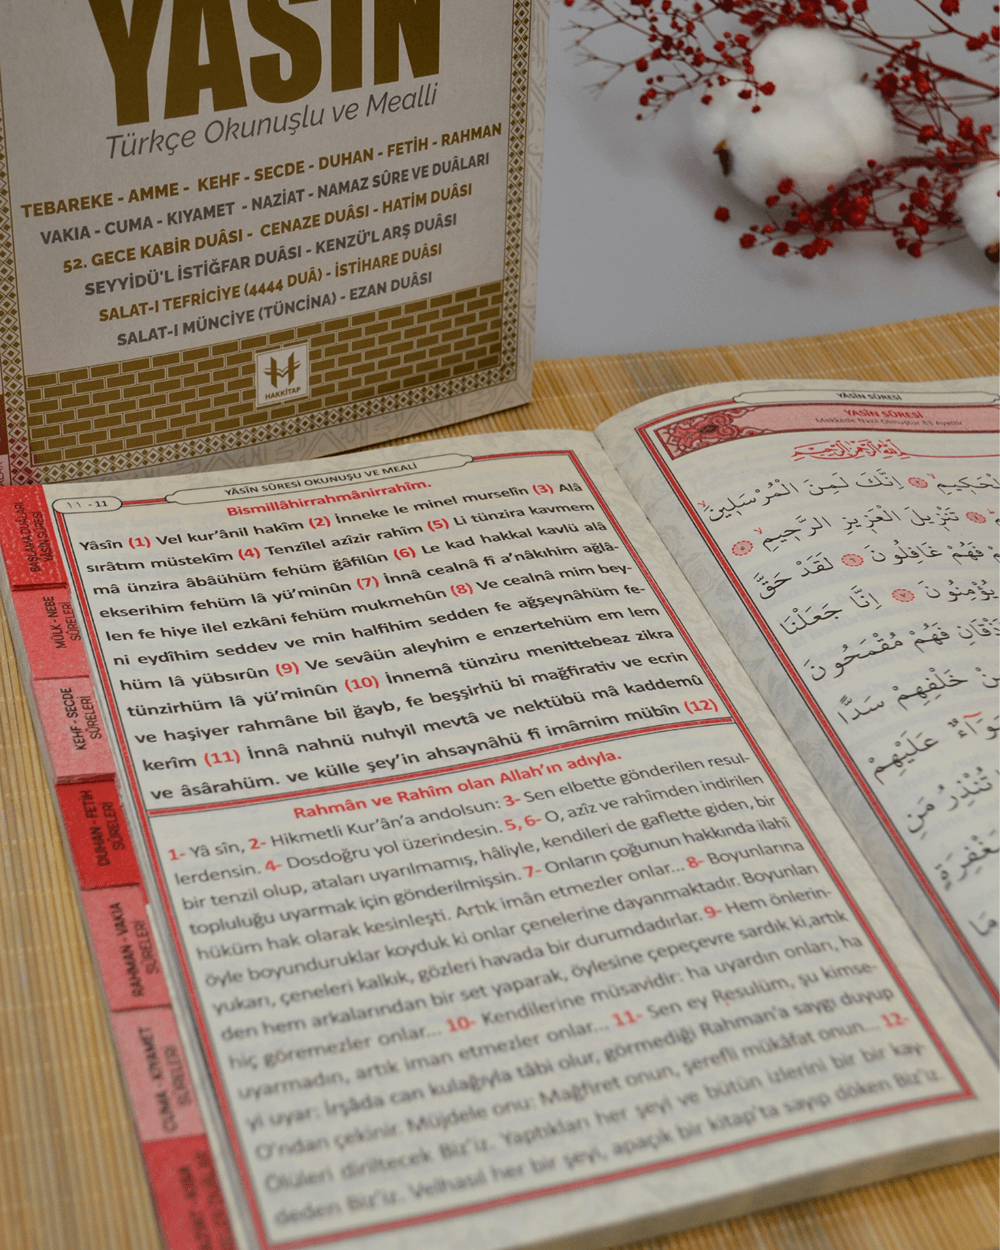 YASİN
Türkçe Okunuşlu ve Mealli
TEBAREKE - AMME - KEHF - SECDE - DUHAN - FETİH - RAHMAN
VAKIA - CUMA - KIYAMET - NAZİAT - NAMAZ SÛRE VE DUÂLARI
52. GECE KABİR DUÂSI - CENAZE DUÂSI - HATİM DUÂSI
SEYYİDÜ'L İSTİĞFAR DUÂSI - KENZÜ'L ARŞ DUÂSI
SALAT-I TEFRİCİYE (4444 DUÂ) - İSTİHARE DUÂSI
SALAT-I MÜNCİYE (TÜNCİNA) - EZAN DUÂSI
HAKKİTAP
١١ - 11
YÂSÎN SÛRESİ OKUNUŞU VE MEALİ
Bismillâhirrahmânirrahîm.
Yâsîn (1) Vel kur'ânil hakîm (2) İnneke le minel murselîn (3) Alâ
sırâtım müstekîm (4) Tenzîlel azîzir rahîm (5) Li tünzira kavmem
mâ ünzira âbâühüm fehüm ğâfilûn (6) Le kad hakkal kavlü alâ
ekserihim fehüm lâ yü'minûn (7) İnnâ cealnâ fî a'nâkıhim ağlâ-
len fe hiye ilel ezkâni fehüm mukmehûn (8) Ve cealnâ mim bey-
ni eydîhim seddev ve min halfihim sedden fe ağşeynâhüm fe-
hüm lâ yübsırûn (9) Ve sevâün aleyhim e enzertehüm em lem
tünzirhüm lâ yü'minûn (10) İnnemâ tünziru menittebeaz zikra
ve haşiyer rahmâne bil ğayb, fe beşşirhü bi mağfirativ ve ecrin
kerîm (11) İnnâ nahnü nuhyil mevtâ ve nektübü mâ kaddemû
ve âsârahüm. ve külle şey'in ahsaynâhü fî imâmim mübîn (12)
Rahmân ve Rahîm olan Allah'ın adıyla.
1- Yâ sîn, 2- Hikmetli Kur'ân'a andolsun: 3- Sen elbette gönderilen resul-
lerdensin. 4- Dosdoğru yol üzerindesin. 5, 6- O, azîz ve rahîmden indirilen
bir tenzil olup, ataları uyarılmamış, hâliyle, kendileri de gaflette giden, bir
topluluğu uyarmak için gönderilmişsin. 7- Onların çoğunun hakkında ilahî
hüküm hak olarak kesinleşti. Artık imân etmezler onlar... 8- Boyunlarına
öyle boyunduruklar koyduk ki onlar çenelerine dayanmaktadır. Boyunları
yukarı, çeneleri kalkık, gözleri havada bir durumdadırlar. 9- Hem önlerin-
den hem arkalarından bir set yaparak, öylesine çepeçevre sardık ki,artık
hiç göremezler onlar... 10- Kendilerine müsavidir: ha uyardın onları, ha
uyarmadın, artık iman etmezler onlar... 11- Sen ey Resulüm, şu kimse-
yi uyar: İrşâda can kulağıyla tâbi olur, görmediği Rahman'a saygı duyup
O'ndan çekinir. Müjdele onu: Mağfiret onun, şerefli mükâfat onun... 12-
Ölüleri diriltecek Biz'iz. Yaptıkları her şeyi ve bütün izlerini bir bir kay-
deden Biz'iz. Velhasıl her bir şeyi, apaçık bir kitap'ta sayıp döken Biz'iz.
YÂSÎN SÛRESİ
MÜLK - NEBE
SÛRELERİ
KEHF - SECDE
SÛRELERİ
DUHAN - FETİH
SÛRELERİ
RAHMAN - VAKIA
SÛRELERİ
CUMA - KIYAMET
SÛRELERİ
YÂSÎN SÛRESİ
YASİN SÛRESİ
Mekkede Nazil Olmuştur 83 Ayettir
اِنَّكَ لَمِنَ الْمُرْسَلِينَ
تَنْزِيلَ الْعَزِيزِ الرَّحِيمِ
فَهُمْ غَافِلُونَ لَقَدْ حَقَّ
يُؤْمِنُونَ اِنَّا جَعَلْنَا
فَهُمْ مُقْمَحُونَ
خَلْفِهِمْ سَدًّا
عَلَيْهِمْ
تُنْذِرُ مَنِ
مَا